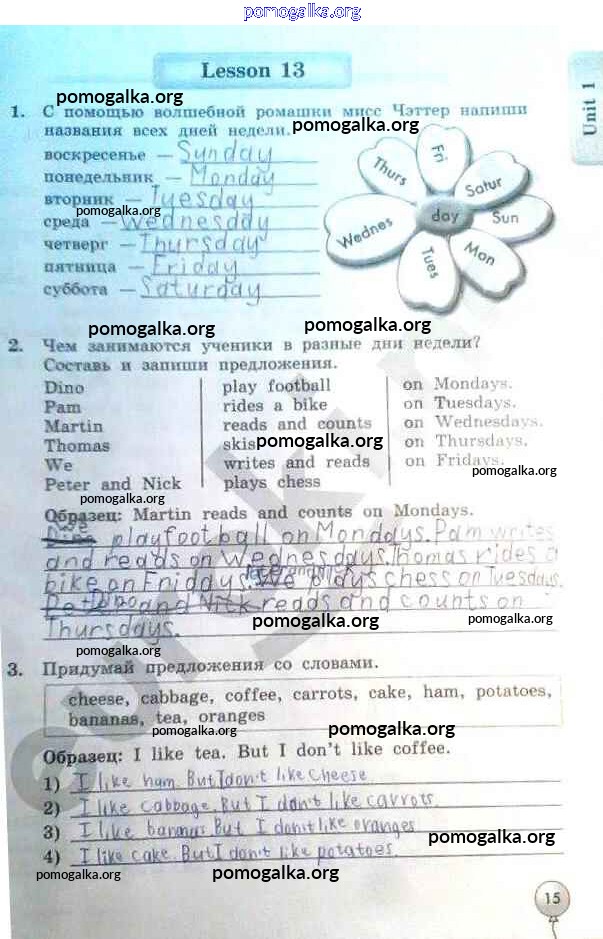 pomogalka.org
Lesson 13
Unit 1
pomogalka.org
1. С помощью волшебной ромашки мисс Чэттер напиши
названия всех дней недели. pomogalka.org
воскресенье — Sunday
понедельник — Monday
вторник — Tuesday
pomogalka.org
среда — Wednesday
четверг — Thursday
пятница — Friday
суббота — Saturday
Fri
Thurs
Satur
day
Sun
Wednes
Mon
Tues
pomogalka.org pomogalka.org
2. Чем занимаются ученики в разные дни недели?
Составь и запиши предложения.
Dino play football on Mondays.
Pam rides a bike on Tuesdays.
Martin reads and counts on Wednesdays.
Thomas skis pomogalka.org on Thursdays.
We writes and reads on Fridays.
pomogalka.org
Peter and Nick plays chess
pomogalka.org
Образец: Martin reads and counts on Mondays.
We
Dino play football on Mondays. Pam writes
and reads on Wednesdays. Thomas rides a
bike on Fridays. We plays chess on Tuesdays.
Dino and Nick reads and counts on
Thursdays.
pomogalka.org pomogalka.org
pomogalka.org
3. Придумай предложения со словами.
cheese, cabbage, coffee, carrots, cake, ham, potatoes,
bananas, tea, oranges
pomogalka.org pomogalka.org
Образец: I like tea. But I don't like coffee.
1) I like ham. But I don't like cheese
2) I like cabbage. But I don't like carrots.
3) I like bananas. But I don't like oranges
pomogalka.org
4) I like cake. But I don't like potatoes.
pomogalka.org pomogalka.org
15